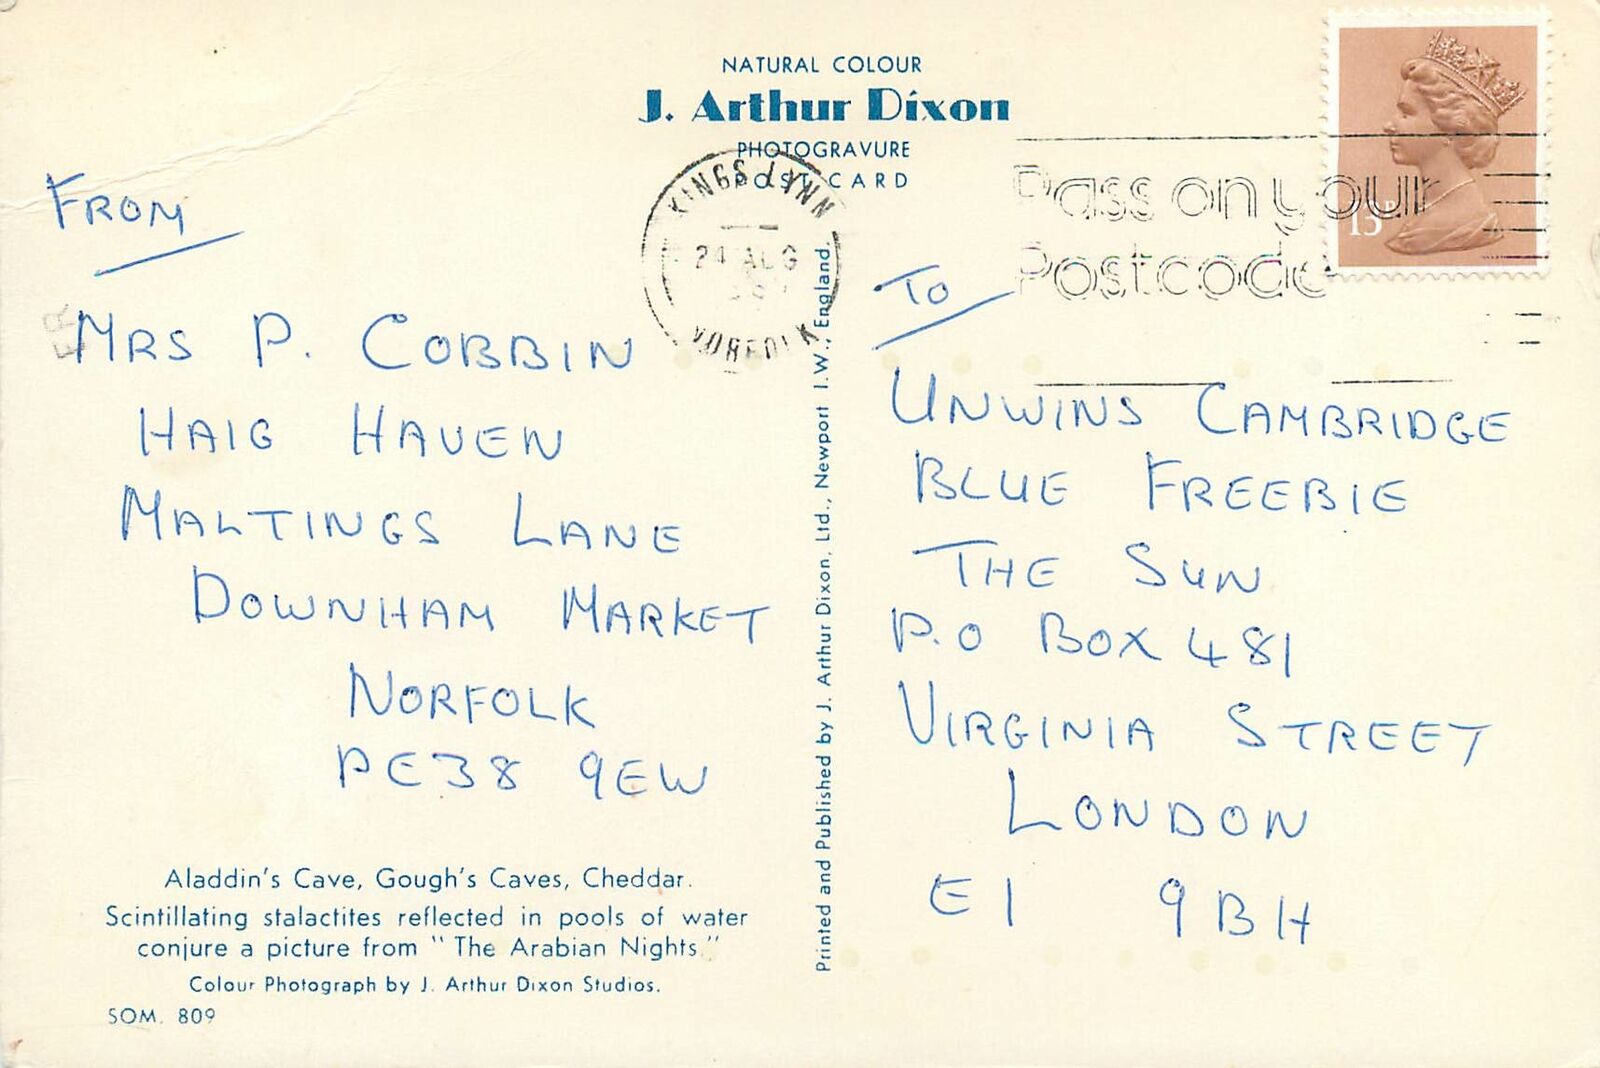 NATURAL COLOUR
J. Arthur Dixon
PHOTOGRAVURE
POST CARD
KINGS LYNN
24 AUG
NORFOLK
Pass on your
Postcode
13P
FROM
MRS P. COBBIN
HAIG HAVEN
MALTINGS LANE
DOWNHAM MARKET
NORFOLK
PE38 9EW
Aladdin's Cave, Gough's Caves, Cheddar.
Scintillating stalactites reflected in pools of water
conjure a picture from "The Arabian Nights."
Colour Photograph by J. Arthur Dixon Studios.
SOM. 809
Printed and Published by J. Arthur Dixon, Ltd., Newport I.W., England.
TO
UNWINS CAMBRIDGE
BLUE FREEBIE
THE SUN
P.O BOX 481
VIRGINIA STREET
LONDON
E1 9BH